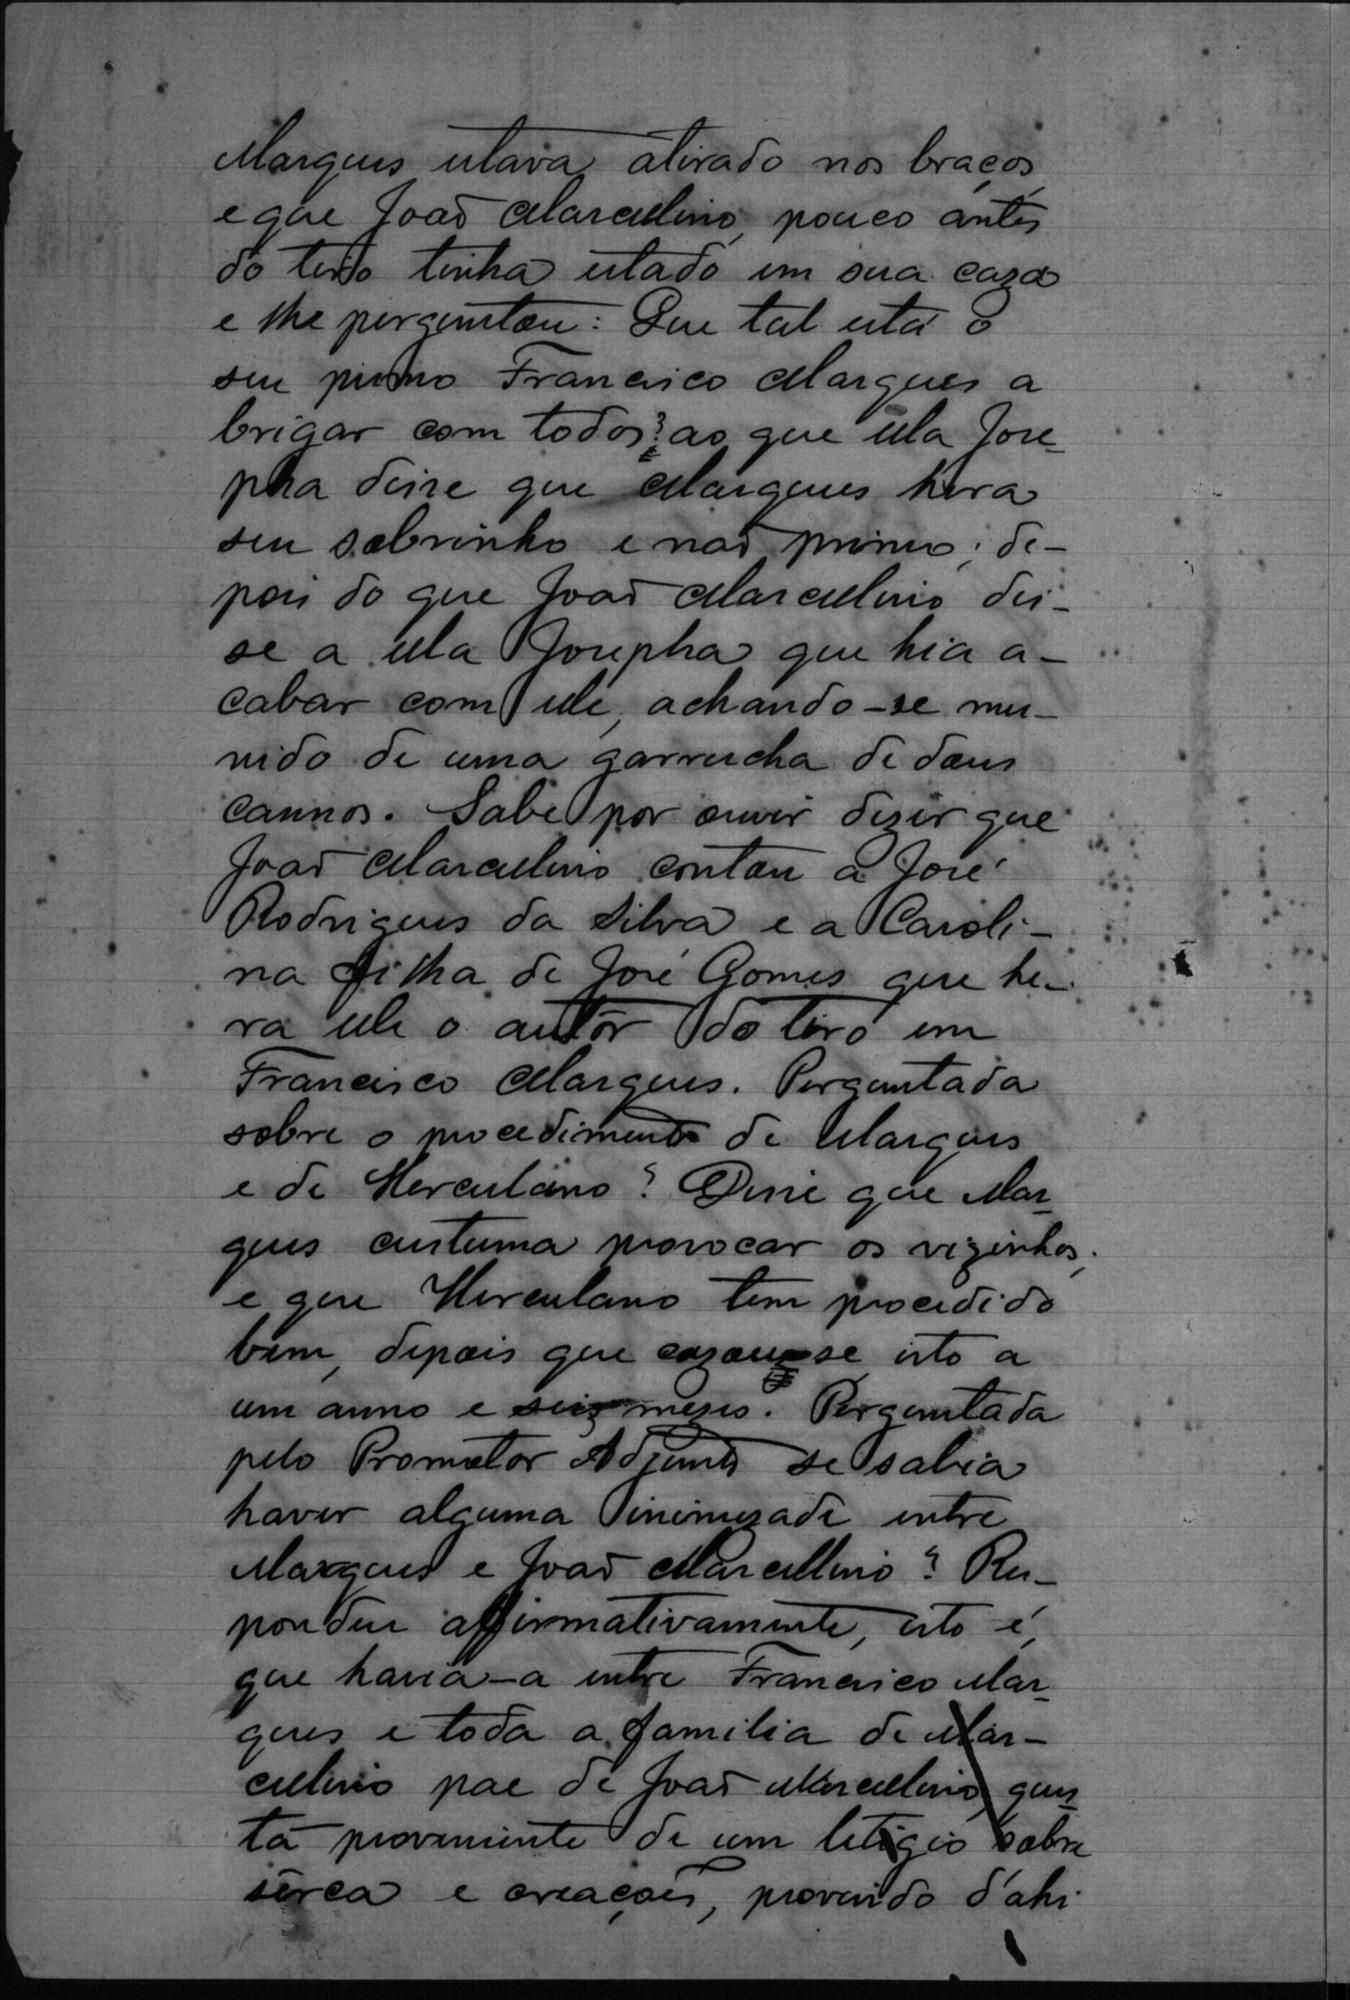 Marques estava atirado nos braços
e que João Marcellino, pouco antes
do tiro tinha estado em sua caza
e lhe perguntou: Que tal está o
seu primo Francisco Marques a
brigar com todos? ao que ella Jose-
pha disse que Marques hera
seu sobrinho e não primo; de-
pois do que João Marcellino dis-
se a ella Josepha que hia a-
cabar com elle, achando-se mu-
nido de uma garrucha de dous
cannos. Sabe por ouvir dizer que
João Marcellino contou a José
Rodrigues da Silva e a Caroli-
na filha de José Gomes que he-
ra elle o autôr do tiro em
Francisco Marques. Perguntada
sobre o procedimento de Marques
e de Herculano? Disse que Mar-
ques custuma provocar os vizinhos,
e que Herculano tem procedido
bem, depois que cazou-se isto a
um anno e seis mezes. Perguntada
pelo Promotor Adjunto se sabia
haver alguma inimizade entre
Marques e João Marcellino? Res-
pondeu affirmativamente, isto é,
que havia-a entre Francisco Mar-
ques e toda a familia de Mar-
cellino pae de João Marcellino, ques-
tã proveniente de um letigio sobre
sêrca e creações, provindo d'ahi